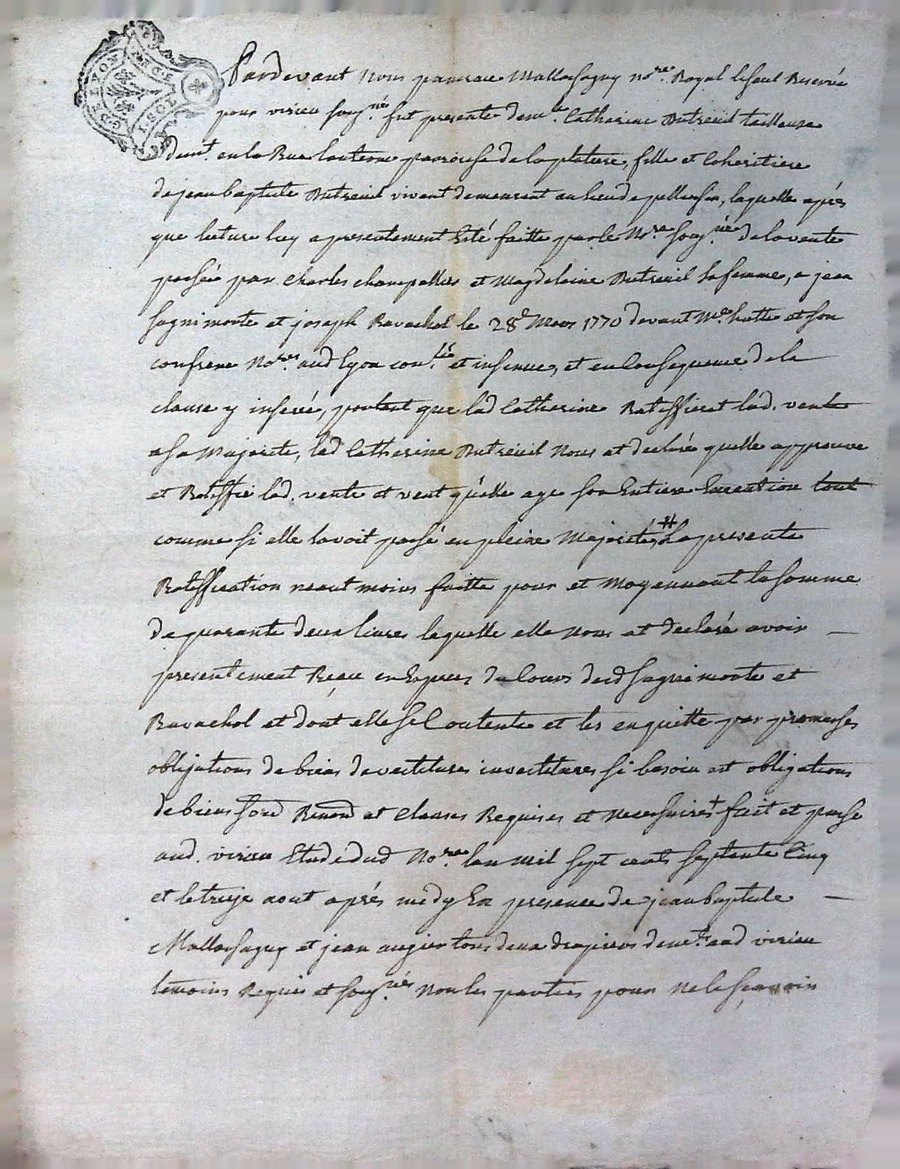 G. DE LYON
Pardevant Nous pancrace Mallassagny no.re Royal le seul Reservé
pour virieu soug.né fut presente dem.lle Catherine Dutreuil tailleuse
dem.t en la Rue lanterne parroisse de la platiere, fille et Coheritiere
de jean baptiste Dutreuil vivant demeurant au lieu de pellussin, laquelle après
que lecture luy a presentement Eté faitte par le No.re soug.né de la vente
passée par Charles champallier et Magdelaine Dutreuil sa femme, a jean
sagnimorte et joseph Ravachol le 28.e Mars 1770 devant M.re hutte et son
confrere No.res aud lyon con.lée et insinuée, et en Consequence de la
clause y inserée, portant que lad Catherine Ratiffieroit lad. vente
a sa Majorité, lad Catherine Dutreuil Nous at declaré quelle approuve
et Ratiffie lad. vente et veut qu'elle aye son Entiere Execution tout
comme si elle lavoit passé en pleine Majorité, # La presente
Ratiffication neant moins faitte pour et Moyennant la somme
de quarante deux livres laquelle elle Nous at declaré avoir
presentement Reçue en Especes du Cours desd sagnimorte et
Ravachol et dont elle se Contente et les en quitte par promesses
obligations de biens devestitures investitures si besoin est obligations
de biens soud Renond et Clauses Requises et Necessaires + fait et passé
aud. virieu Etude dud No.re lan mil sept cents septante Cinq
et le treize aout après midy En presence de jean baptiste
Mallassagny et jean augier tous deux drapiers dem.ts aud virieu
temoins Requis et soug.nés Non les parties pour Ne le sçavoir